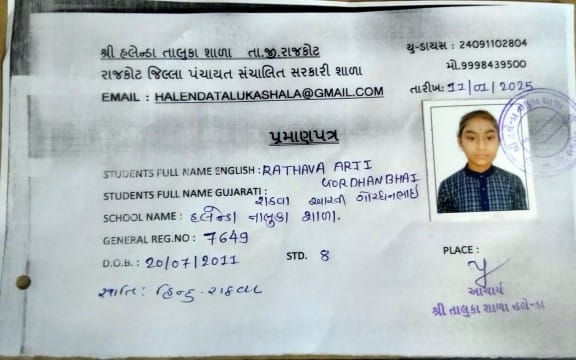 શ્રી હલેન્ડા તાલુકા શાળા તા.જી.રાજકોટ
યુ-ડાયસ : 24091102804
રાજકોટ જિલ્લા પંચાયત સંચાલિત સરકારી શાળા
મો.9998439500
EMAIL : HALENDATALUKASHALA@GMAIL.COM
તારીખ: 11/01/2025
પ્રમાણપત્ર
STUDENTS FULL NAME ENGLISH : RATHAVA ARTI
GORDHANBHAI
STUDENTS FULL NAME GUJARATI : રાઠવા આરતી ગોરધનભાઈ
SCHOOL NAME : હલેન્ડા તાલુકા શાળા.
GENERAL REG.NO : 7649
D.O.B : 20/07/2011 STD. 8
PLACE :
જાતિ: હિન્દુ-રાઠવા
આચાર્ય
શ્રી તાલુકા શાળા હલેન્ડા